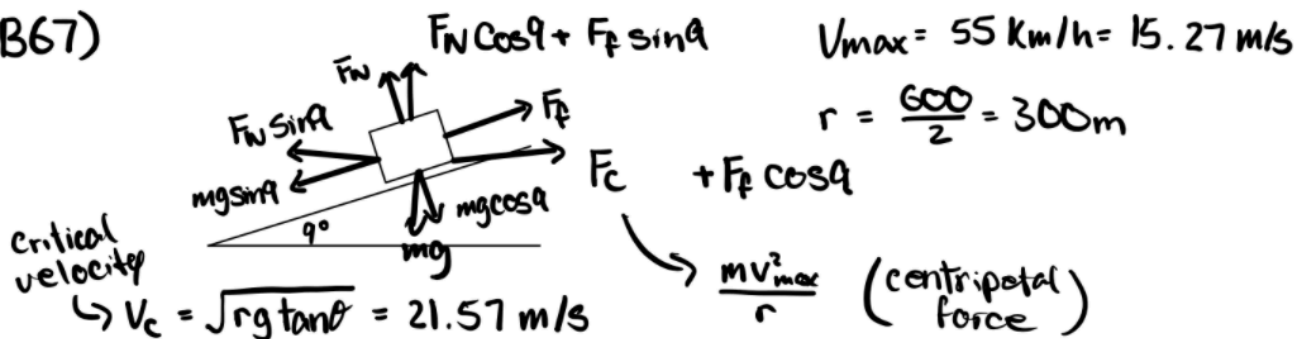 B67)
F_N Cos9 + F_f sin9
V_max = 55 Km/h = 15.27 m/s
F_N
F_f
r = 600/2 = 300m
F_N Sin9
F_c + F_f cos9
mgsin9
mgcos9
9°
mg
critical
velocity
↳ V_c = √rg tanθ = 21.57 m/s
mv²_max/r (centripetal
force)